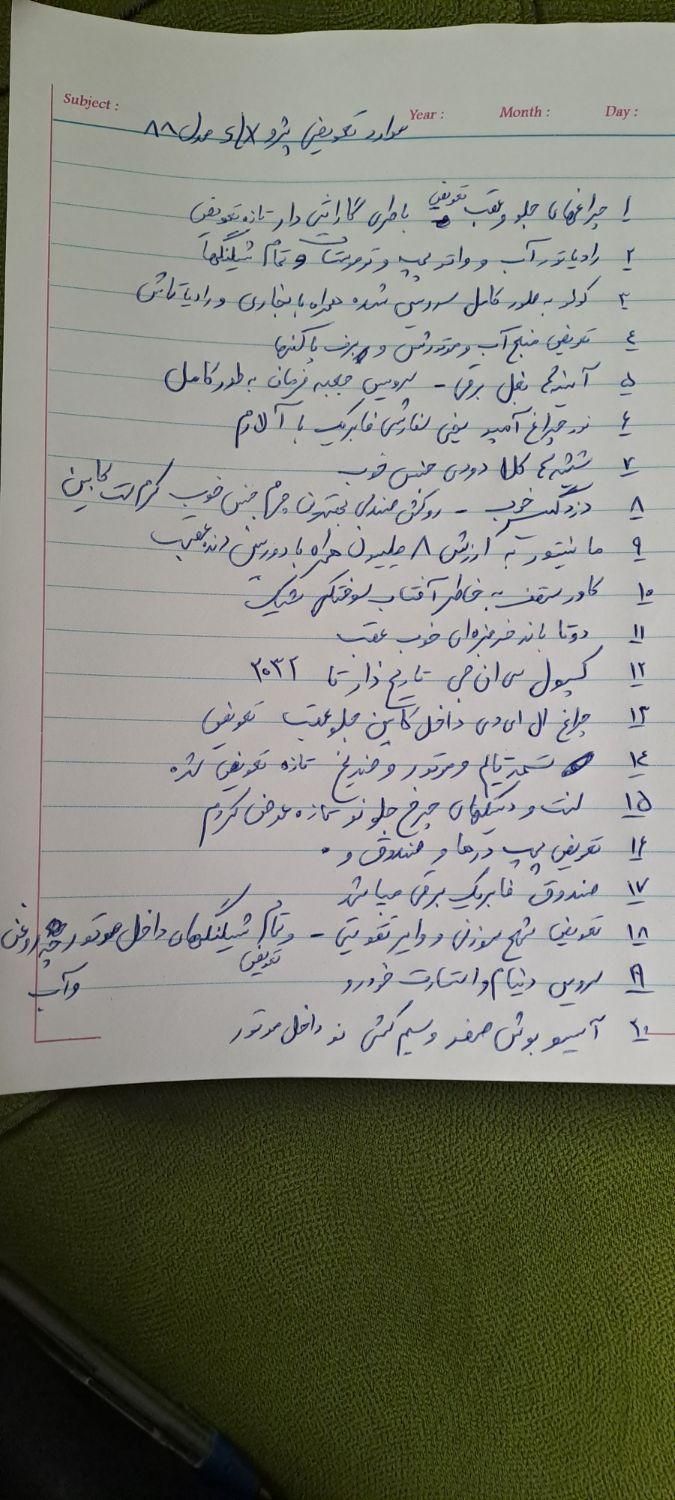 Subject : Year : Month : Day :
موارد تعویض پژو مدل ۸۸
۱ چراغهای جلو و عقب تعویض باطری گارانتی دار تازه تعویض
۲ رادیاتور آب و واتر پمپ و ترموستات و تمام شیلنگها
۳ کولر به طور کامل سرویس شده همراه با بخاری و رادیاتاش
۴ تعویض منبع آب و موتورفن و
۵ آینه‌های بغل برقی - سرویس جعبه فرمان به طور کامل
۶ نور چراغ آمپر یخی سفارشی فابریک با آلارم
۷ شیشه‌ها کلا دودی جنس خوب
۸ دزدگیر خوب - روکش صندلی بهترین چرم جنس خوب کرم ست کابین
۹ مانیتور به ارزش ۸ میلیون همراه با دوربین دنده عقب
۱۰ کاور سقف به خاطر آفتاب سوختگی شیک
۱۱ دوتا باند خربزه‌ای خوب عقب
۱۲ کپسول سی ان جی تاریخ دار تا ۲۰۳۲
۱۳ چراغ ال ای دی داخل کابین جلو عقب تعویض
۱۴ تسمه تایم و موتور و تازه تعویض شده
۱۵ لنت و دیسکهای چرخ جلو نو تازه عوض کردم
۱۶ تعویض پمپ درها و صندوق و .
۱۷ صندوق فابریک برقی میباشد
۱۸ تعویض شمع سوزنی و وایر تقویتی - و تمام شیلنگهای داخل موتور روغن
تعویض
و آب
۱۹ سرویس دینام و استارت خودرو
۲۰ سیم کشی نو داخل موتور